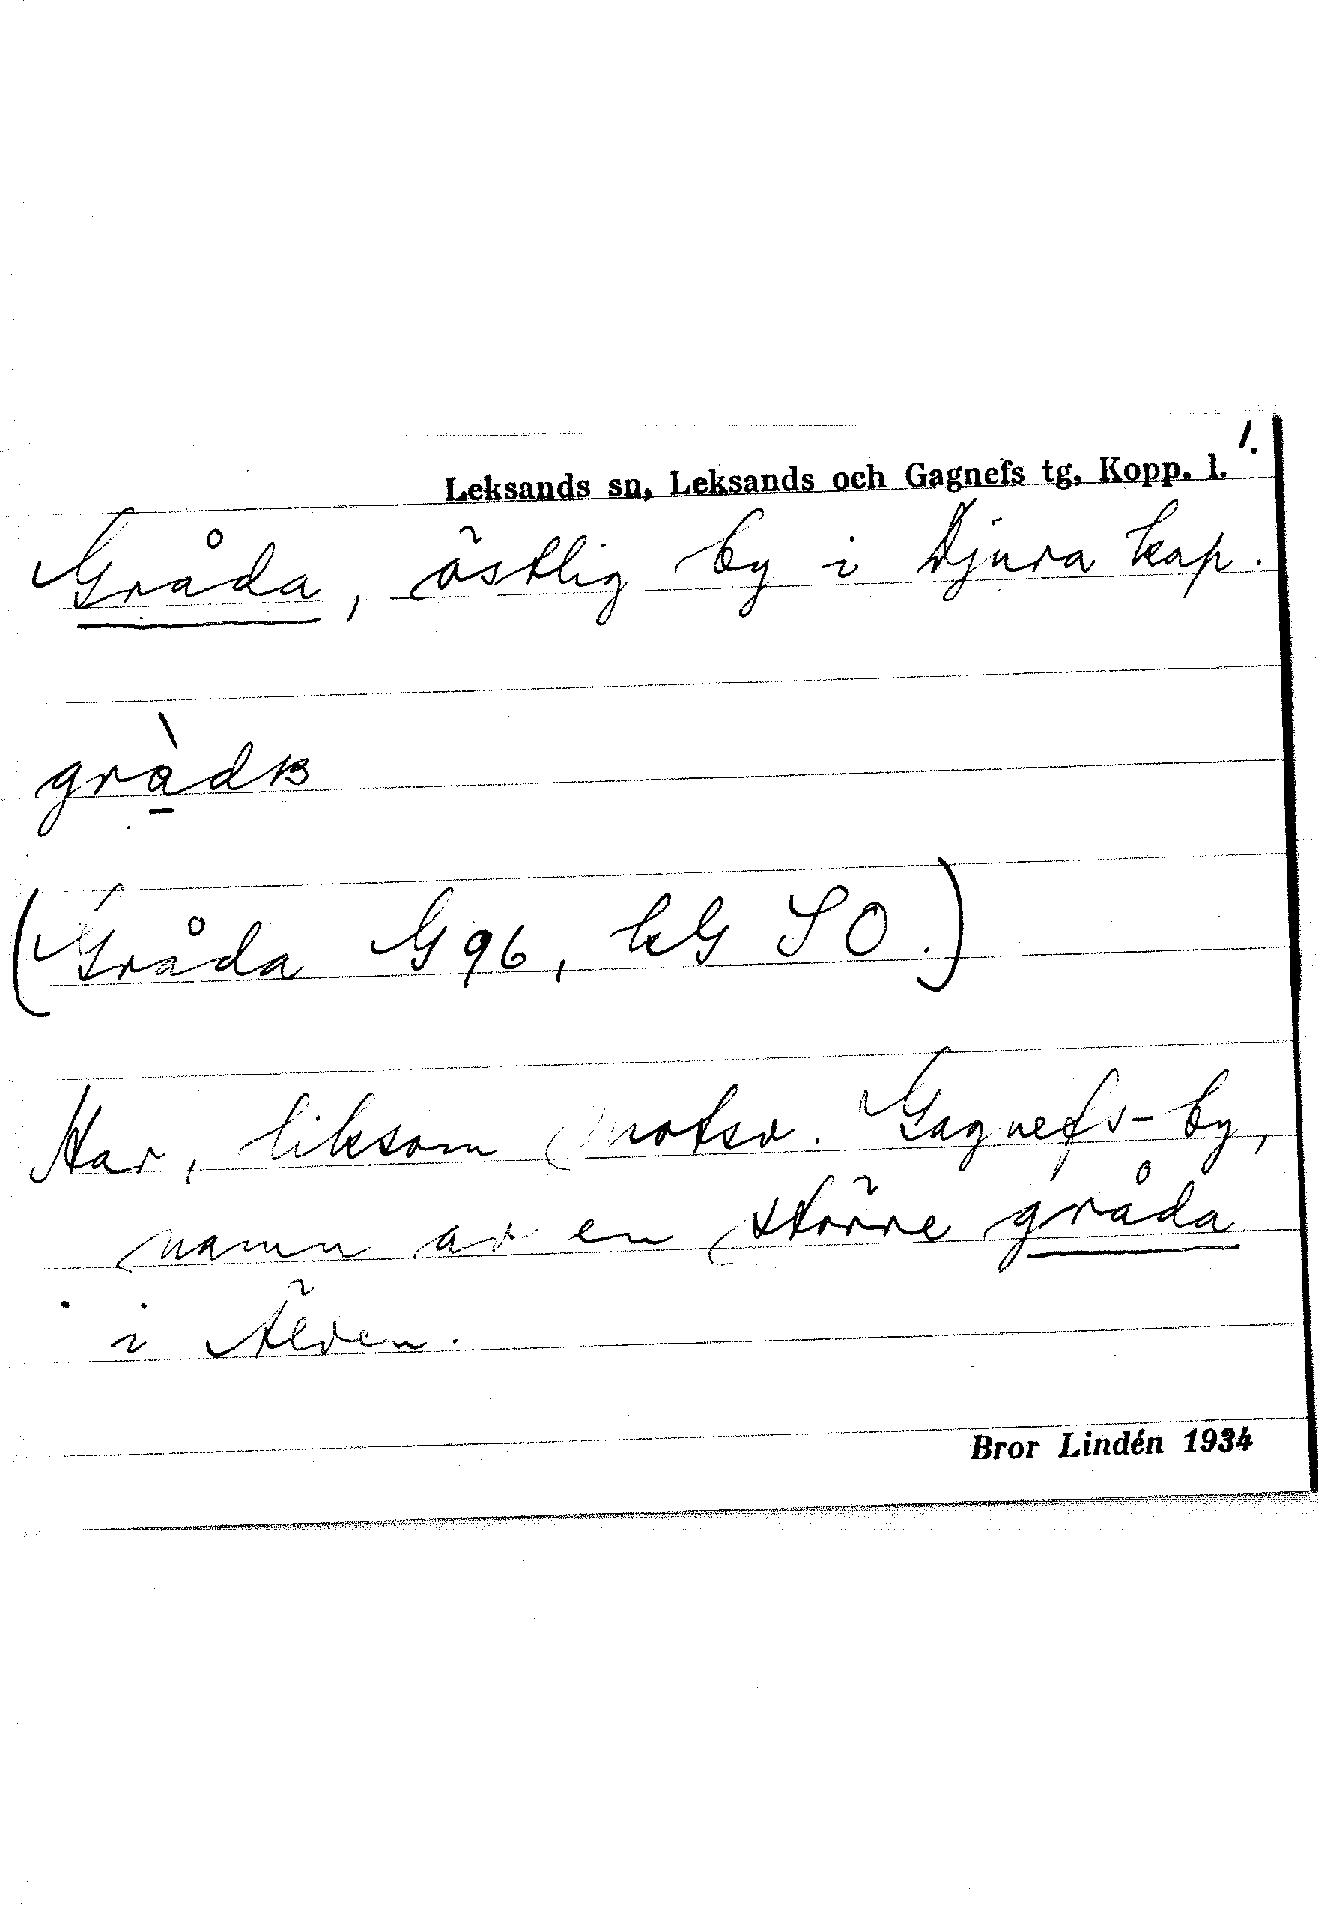 1.
Leksands sn, Leksands och Gagnefs tg, Kopp. l.
Gråda, östlig by i Djura kap.
(Gråda G 96, kG SO.)
Har, liksom motsv. Gagnefs-by,
namn av en större gråda
i Älven.
Bror Lindén 1934